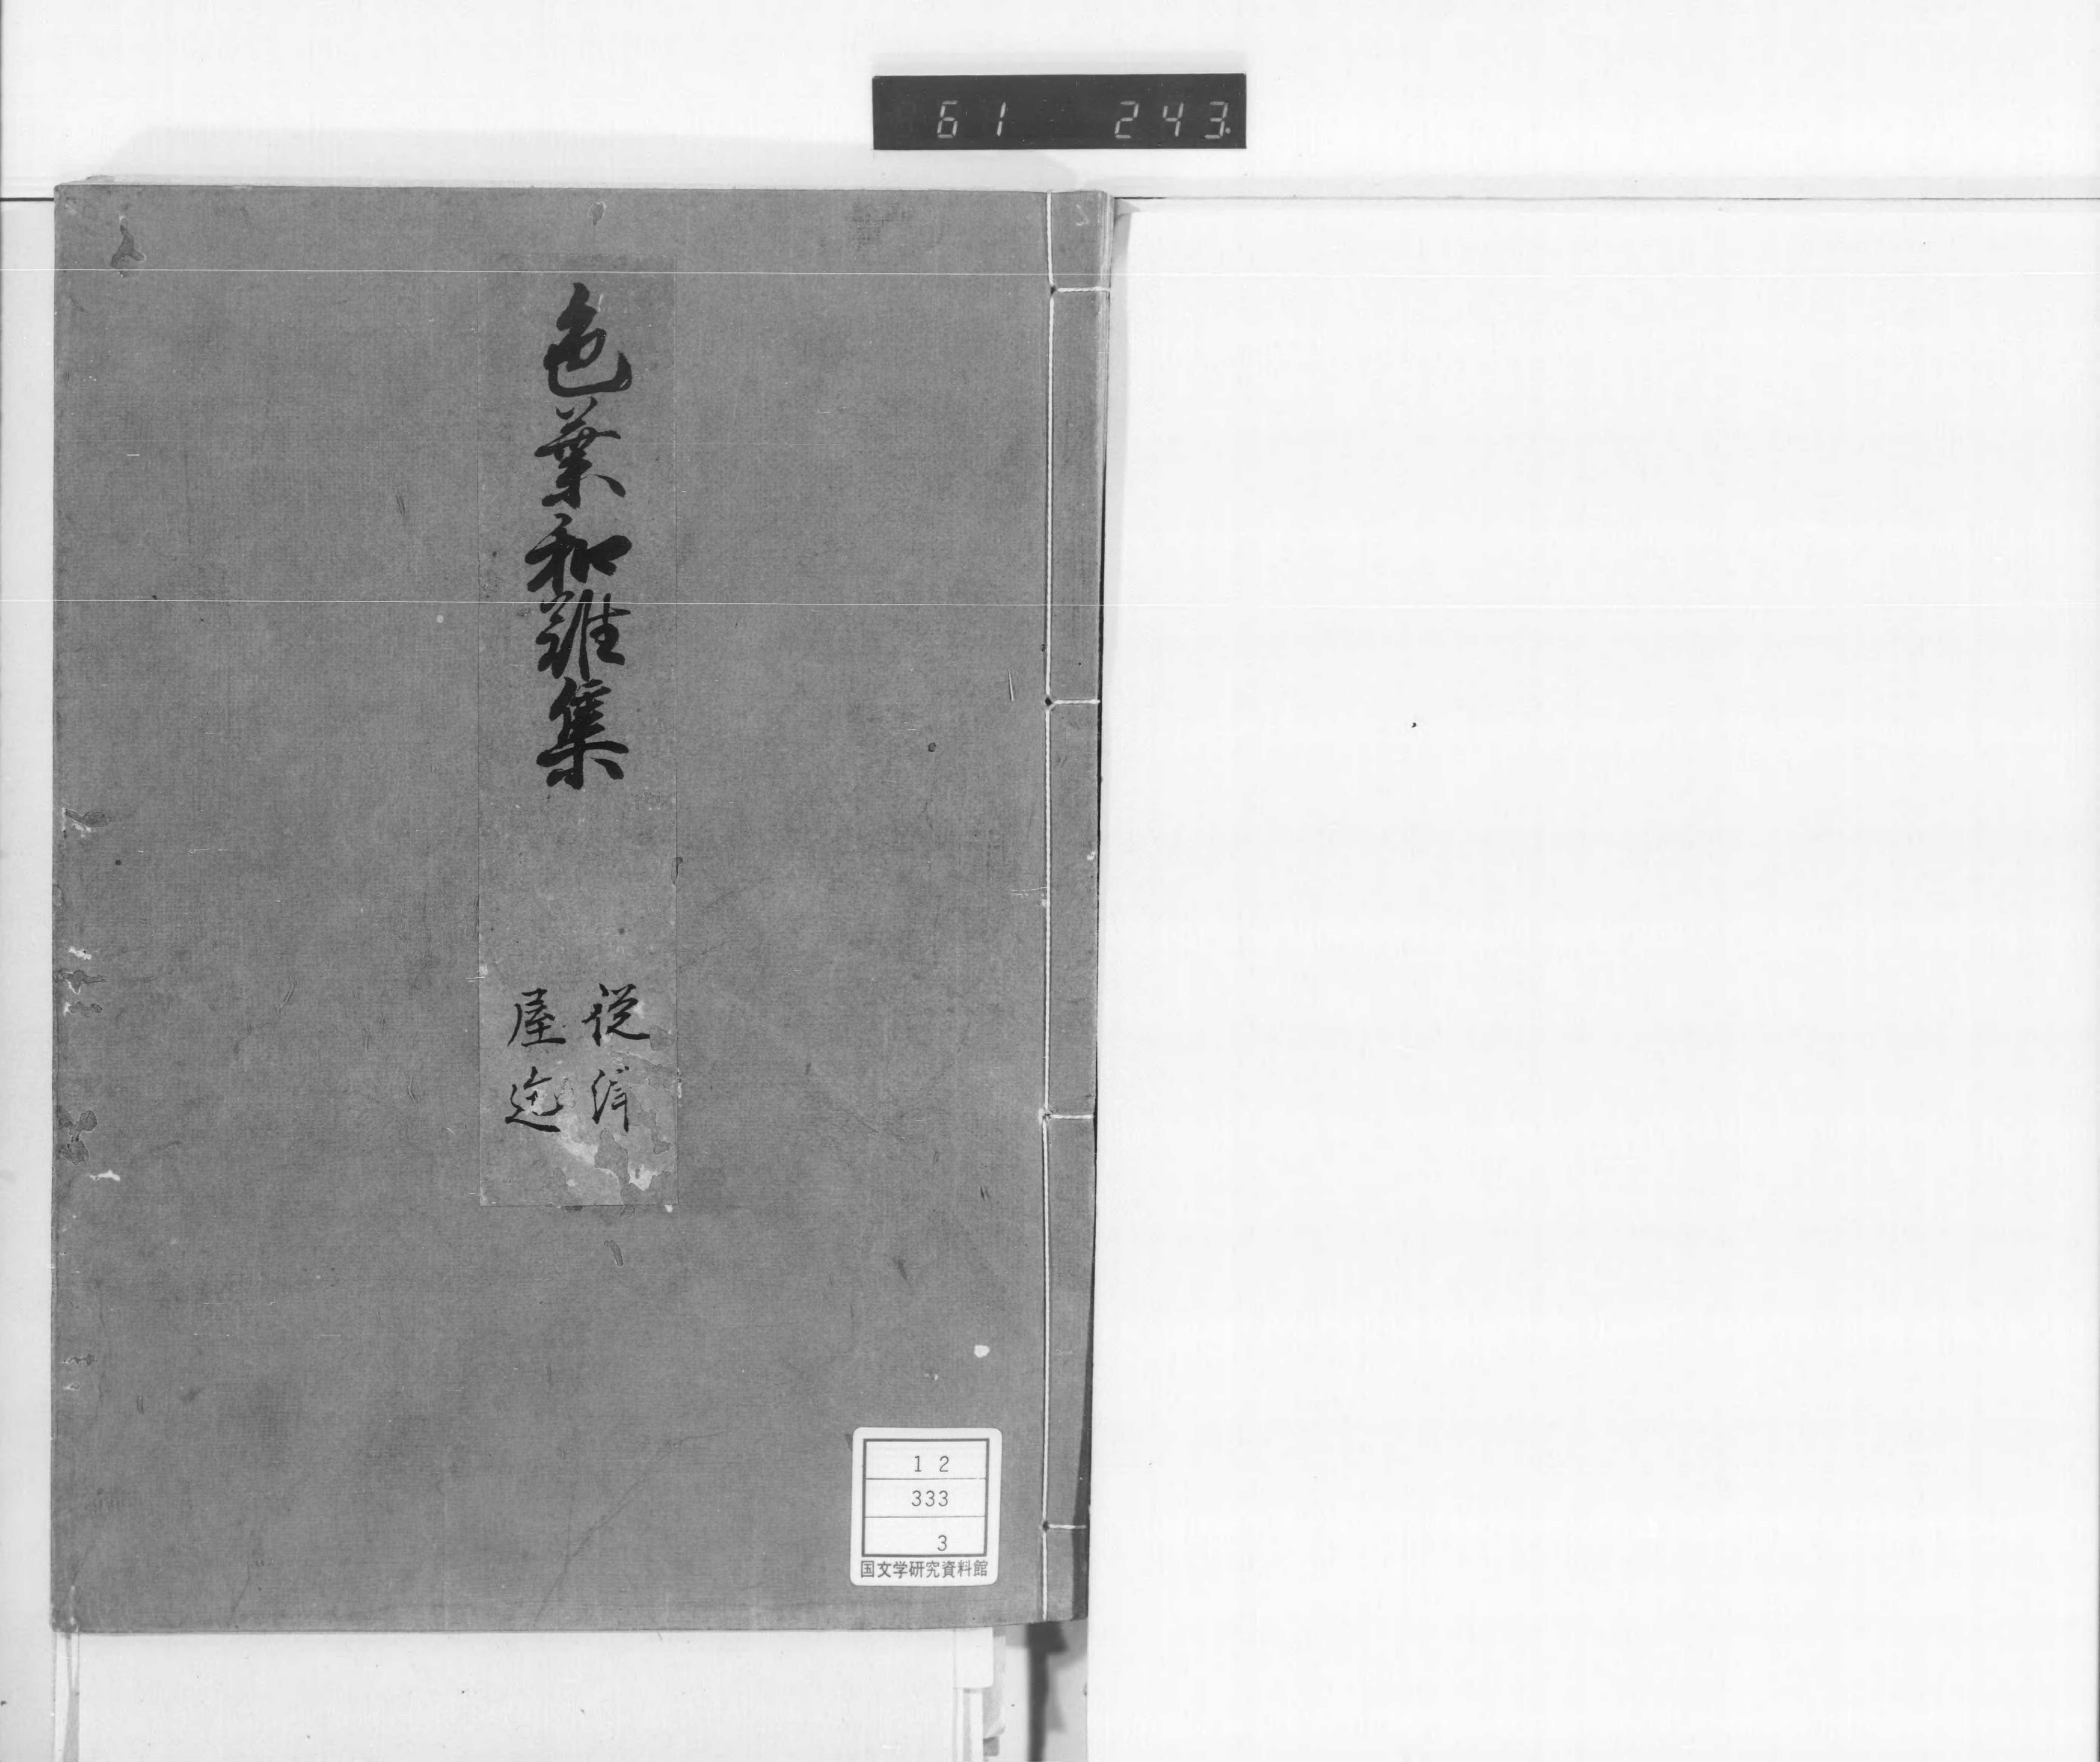 61 243
色葉和難集
従津
屋迄
12
333
3
国文学研究資料館